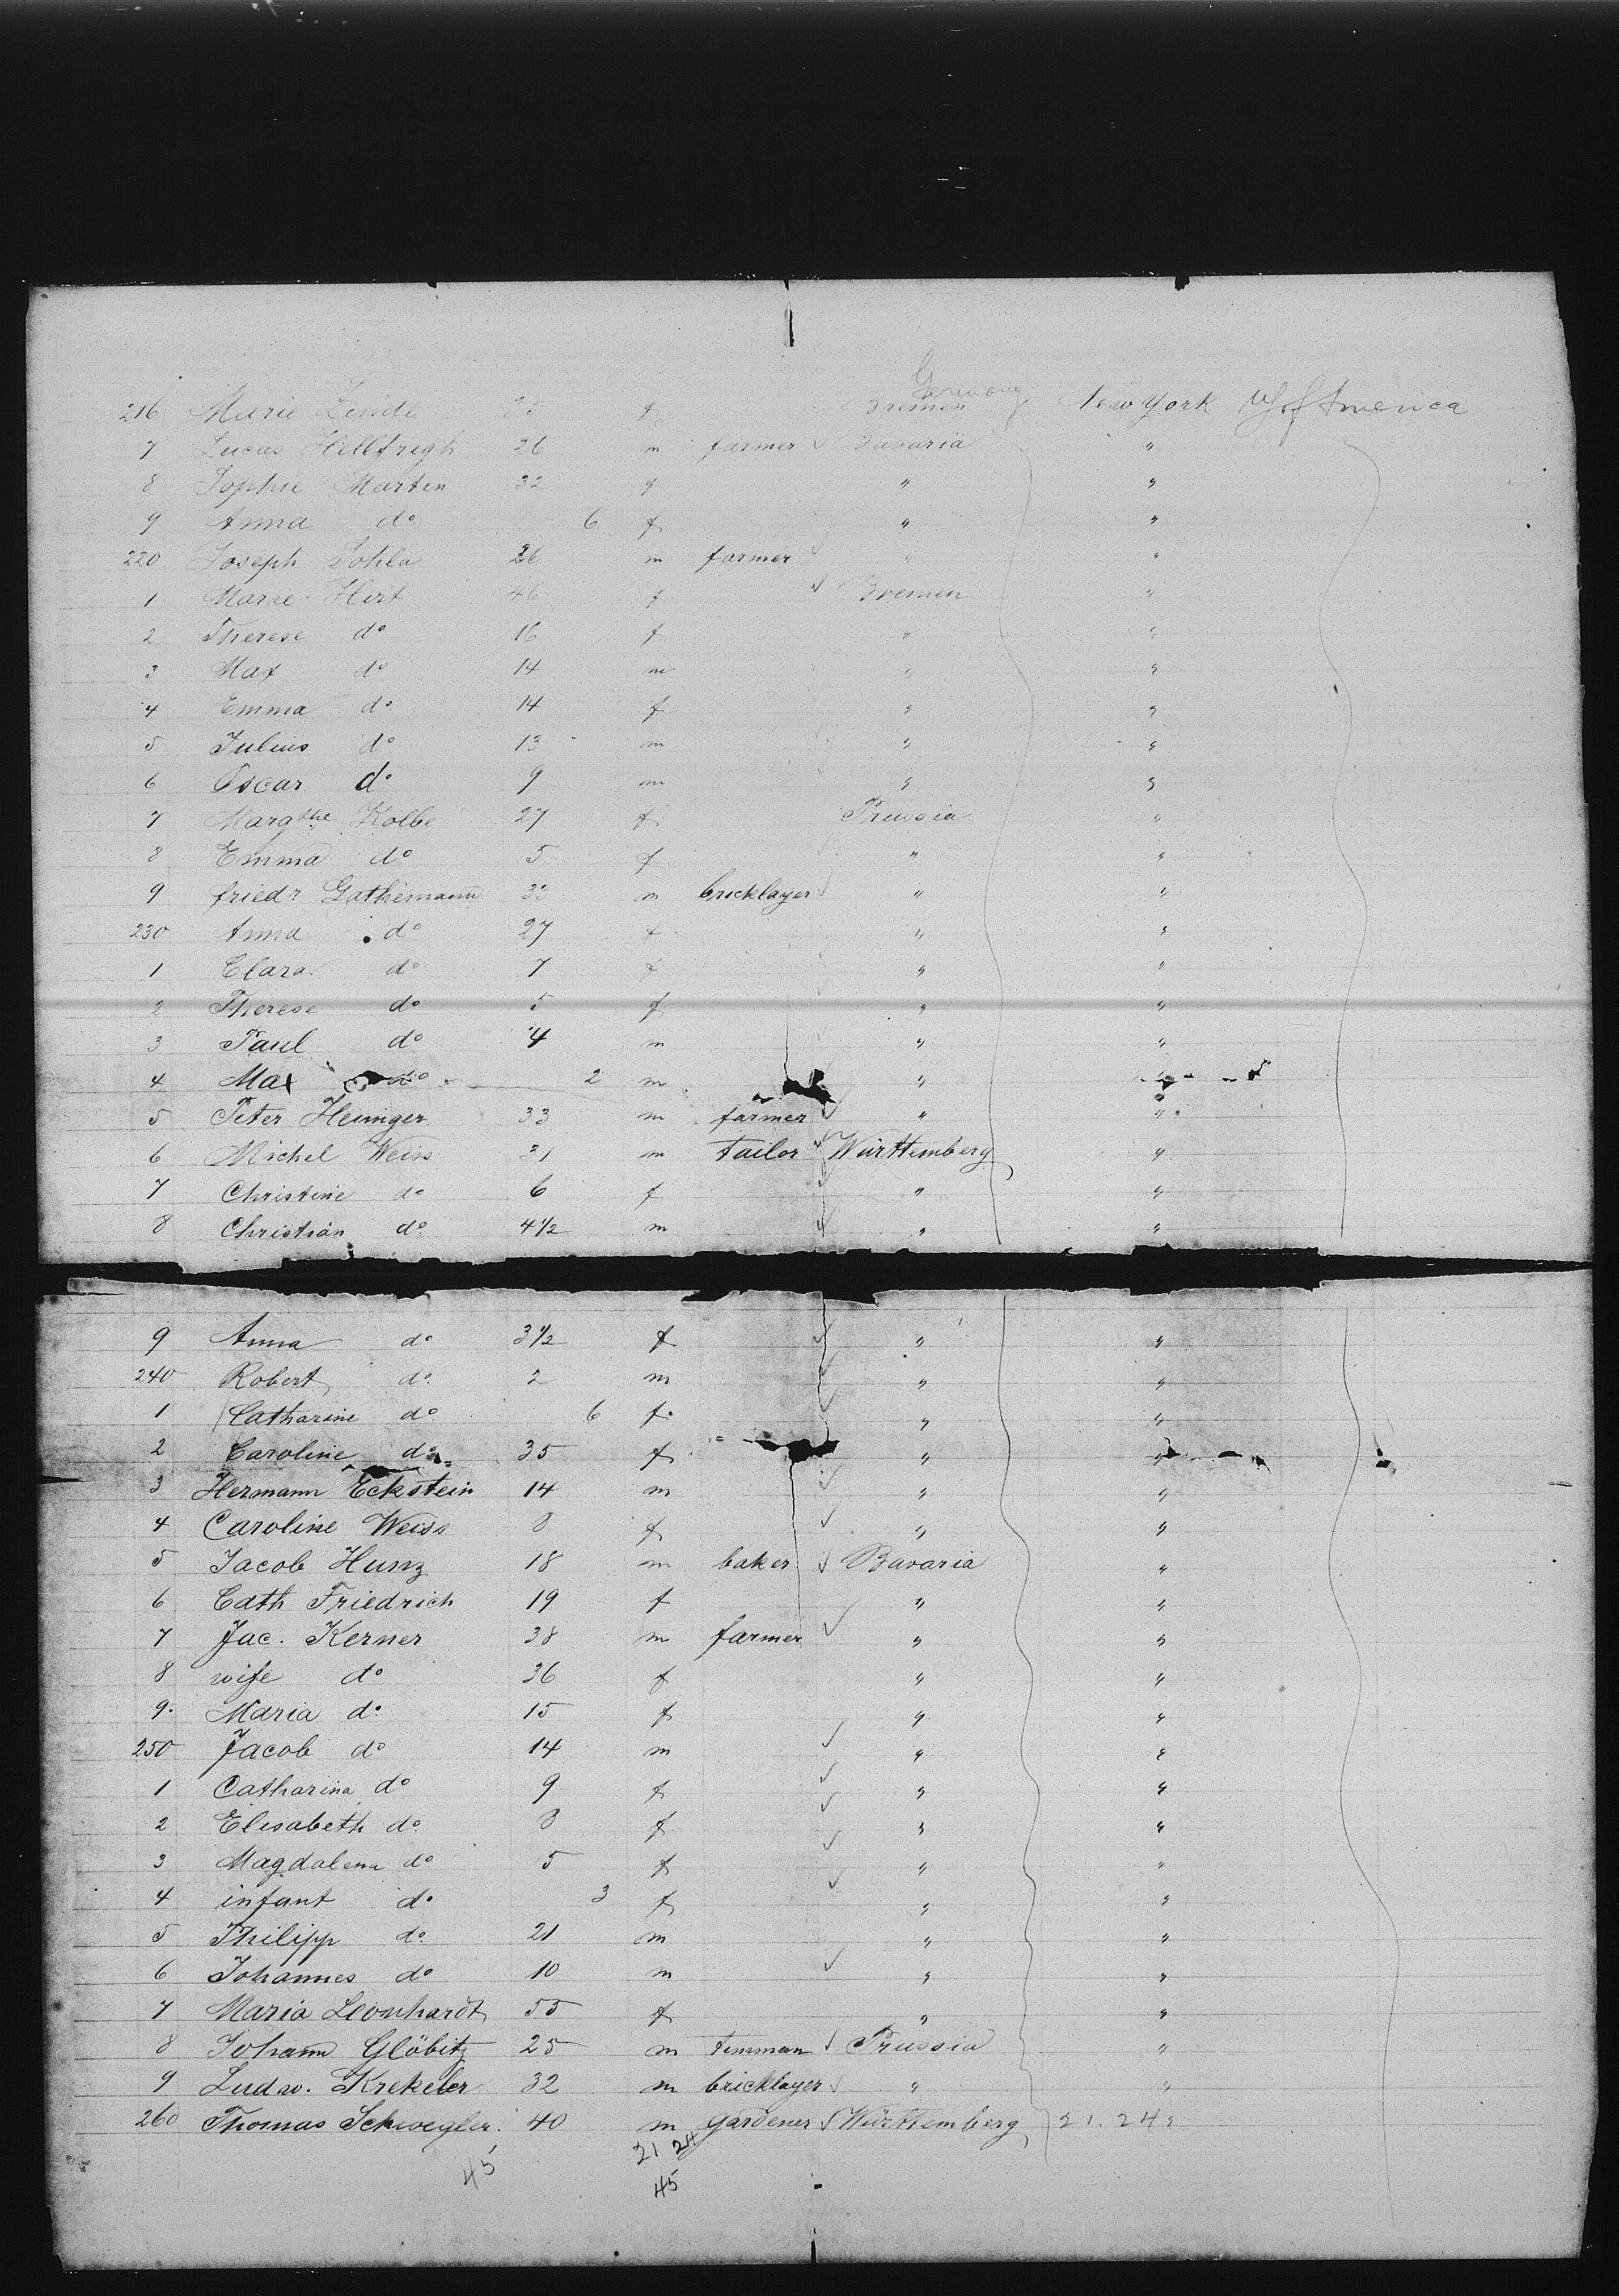 Germany
216 Marie f Bremen New York U S of America
7 Lucas Helbfrigh 26 m farmer ✓ Bavaria "
8 Sophie Marten 32 f " "
9 Anna do 6 f " "
220 Joseph Sohla 26 m farmer " "
1 Marie Hirt 46 f ✓ Bremen "
2 Therese do 16 f " "
3 Max do 14 m " "
4 Emma do 14 f " "
5 Julius do 13 m " "
6 Oscar do 9 m " "
7 Margthe Kolbe 27 f Prussia "
8 Emma do 5 f " "
9 friedr Gathemann m bricklayer ✓ " "
230 Anna do 27 f " "
1 Clara do 7 f " "
2 Therese do 5 f " "
3 Paul do 4 m " "
4 Max do 2 m " "
5 Peter Heuniger 33 m farmer ✓ " "
6 Michel Weiss 31 m tailor ✓ Württemberg "
7 Christine do 6 f ✓ " "
8 Christian do 4 1/2 m ✓ " "
9 Anna do 3 1/2 f ✓ " "
240 Robert do 2 m ✓ " "
1 Catharine do 6 f ✓ " "
2 Caroline do 35 f " "
3 Hermann Eckstein 14 m ✓ " "
4 Caroline Weiss 8 f ✓ " "
5 Jacob Hunz 18 m baker ✓ Bavaria "
6 Cath Friedrich 19 f " "
7 Jac. Kerner 38 m farmer ✓ " "
8 wife do 36 f " "
9. Maria do 15 f " "
250 Jacob do 14 m ✓ " "
1 Catharina do 9 f ✓ " "
2 Elisabeth do 8 f ✓ " "
3 Magdalena do 5 f ✓ " "
4 infant do 3 f ✓ " "
5 Philipp do 21 m " "
6 Johannes do 10 m ✓ " "
7 Maria Leonhardt 55 f " "
8 Johann Glöbitz 25 m tinman ✓ Prussia "
9 Ludw. Krekeler 32 m bricklayer ✓ " "
260 Thomas Schwegler. 40 m gardener ✓ Württemberg 21. 24
21 24
45 45